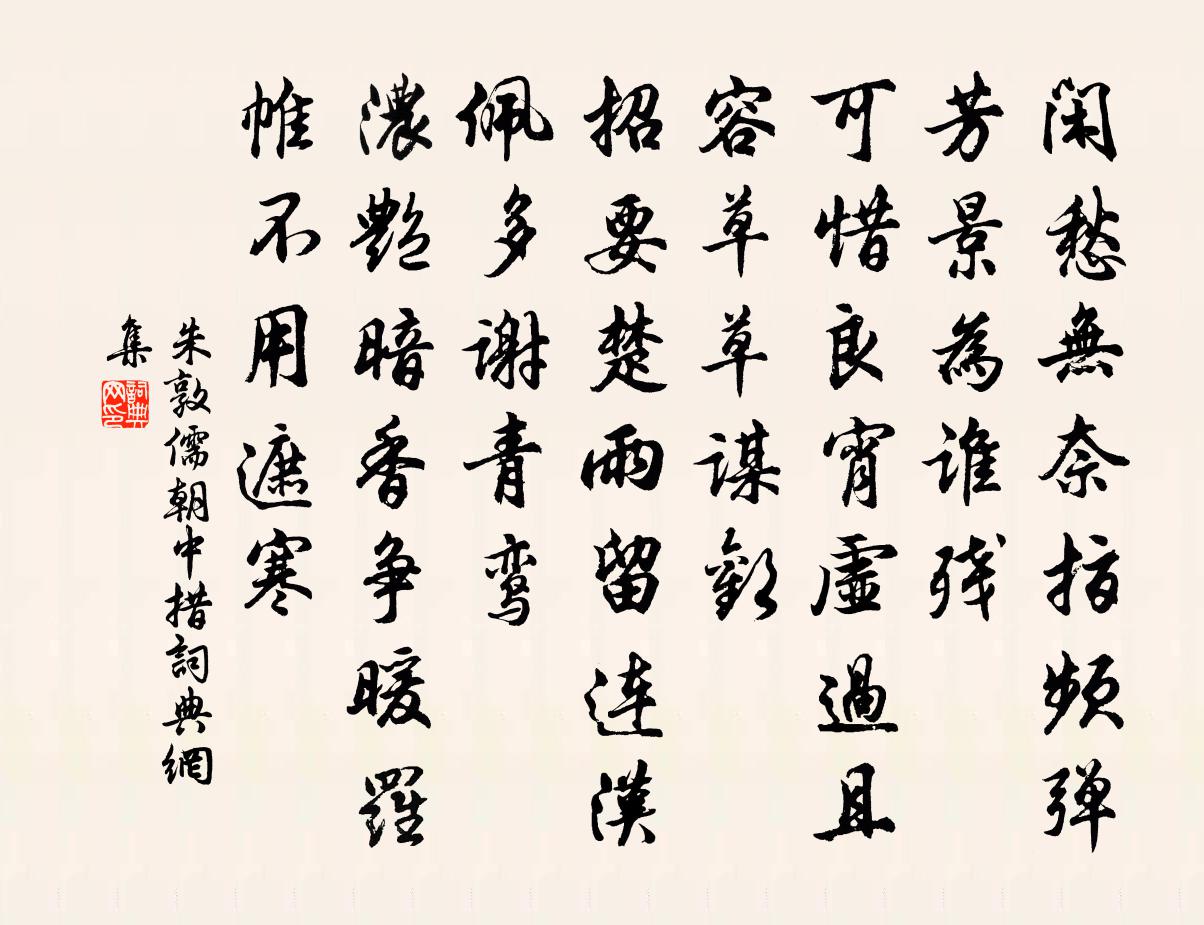 闲愁無奈指频弹
芳景為谁残
可惜良宵虚過且
容草草謀歡
招要楚雨留连漢
佩多謝青鸾
濃艷暗香争暖羅
帷不用遮寒
朱敦儒朝中措詞典網
集
詞典
网印